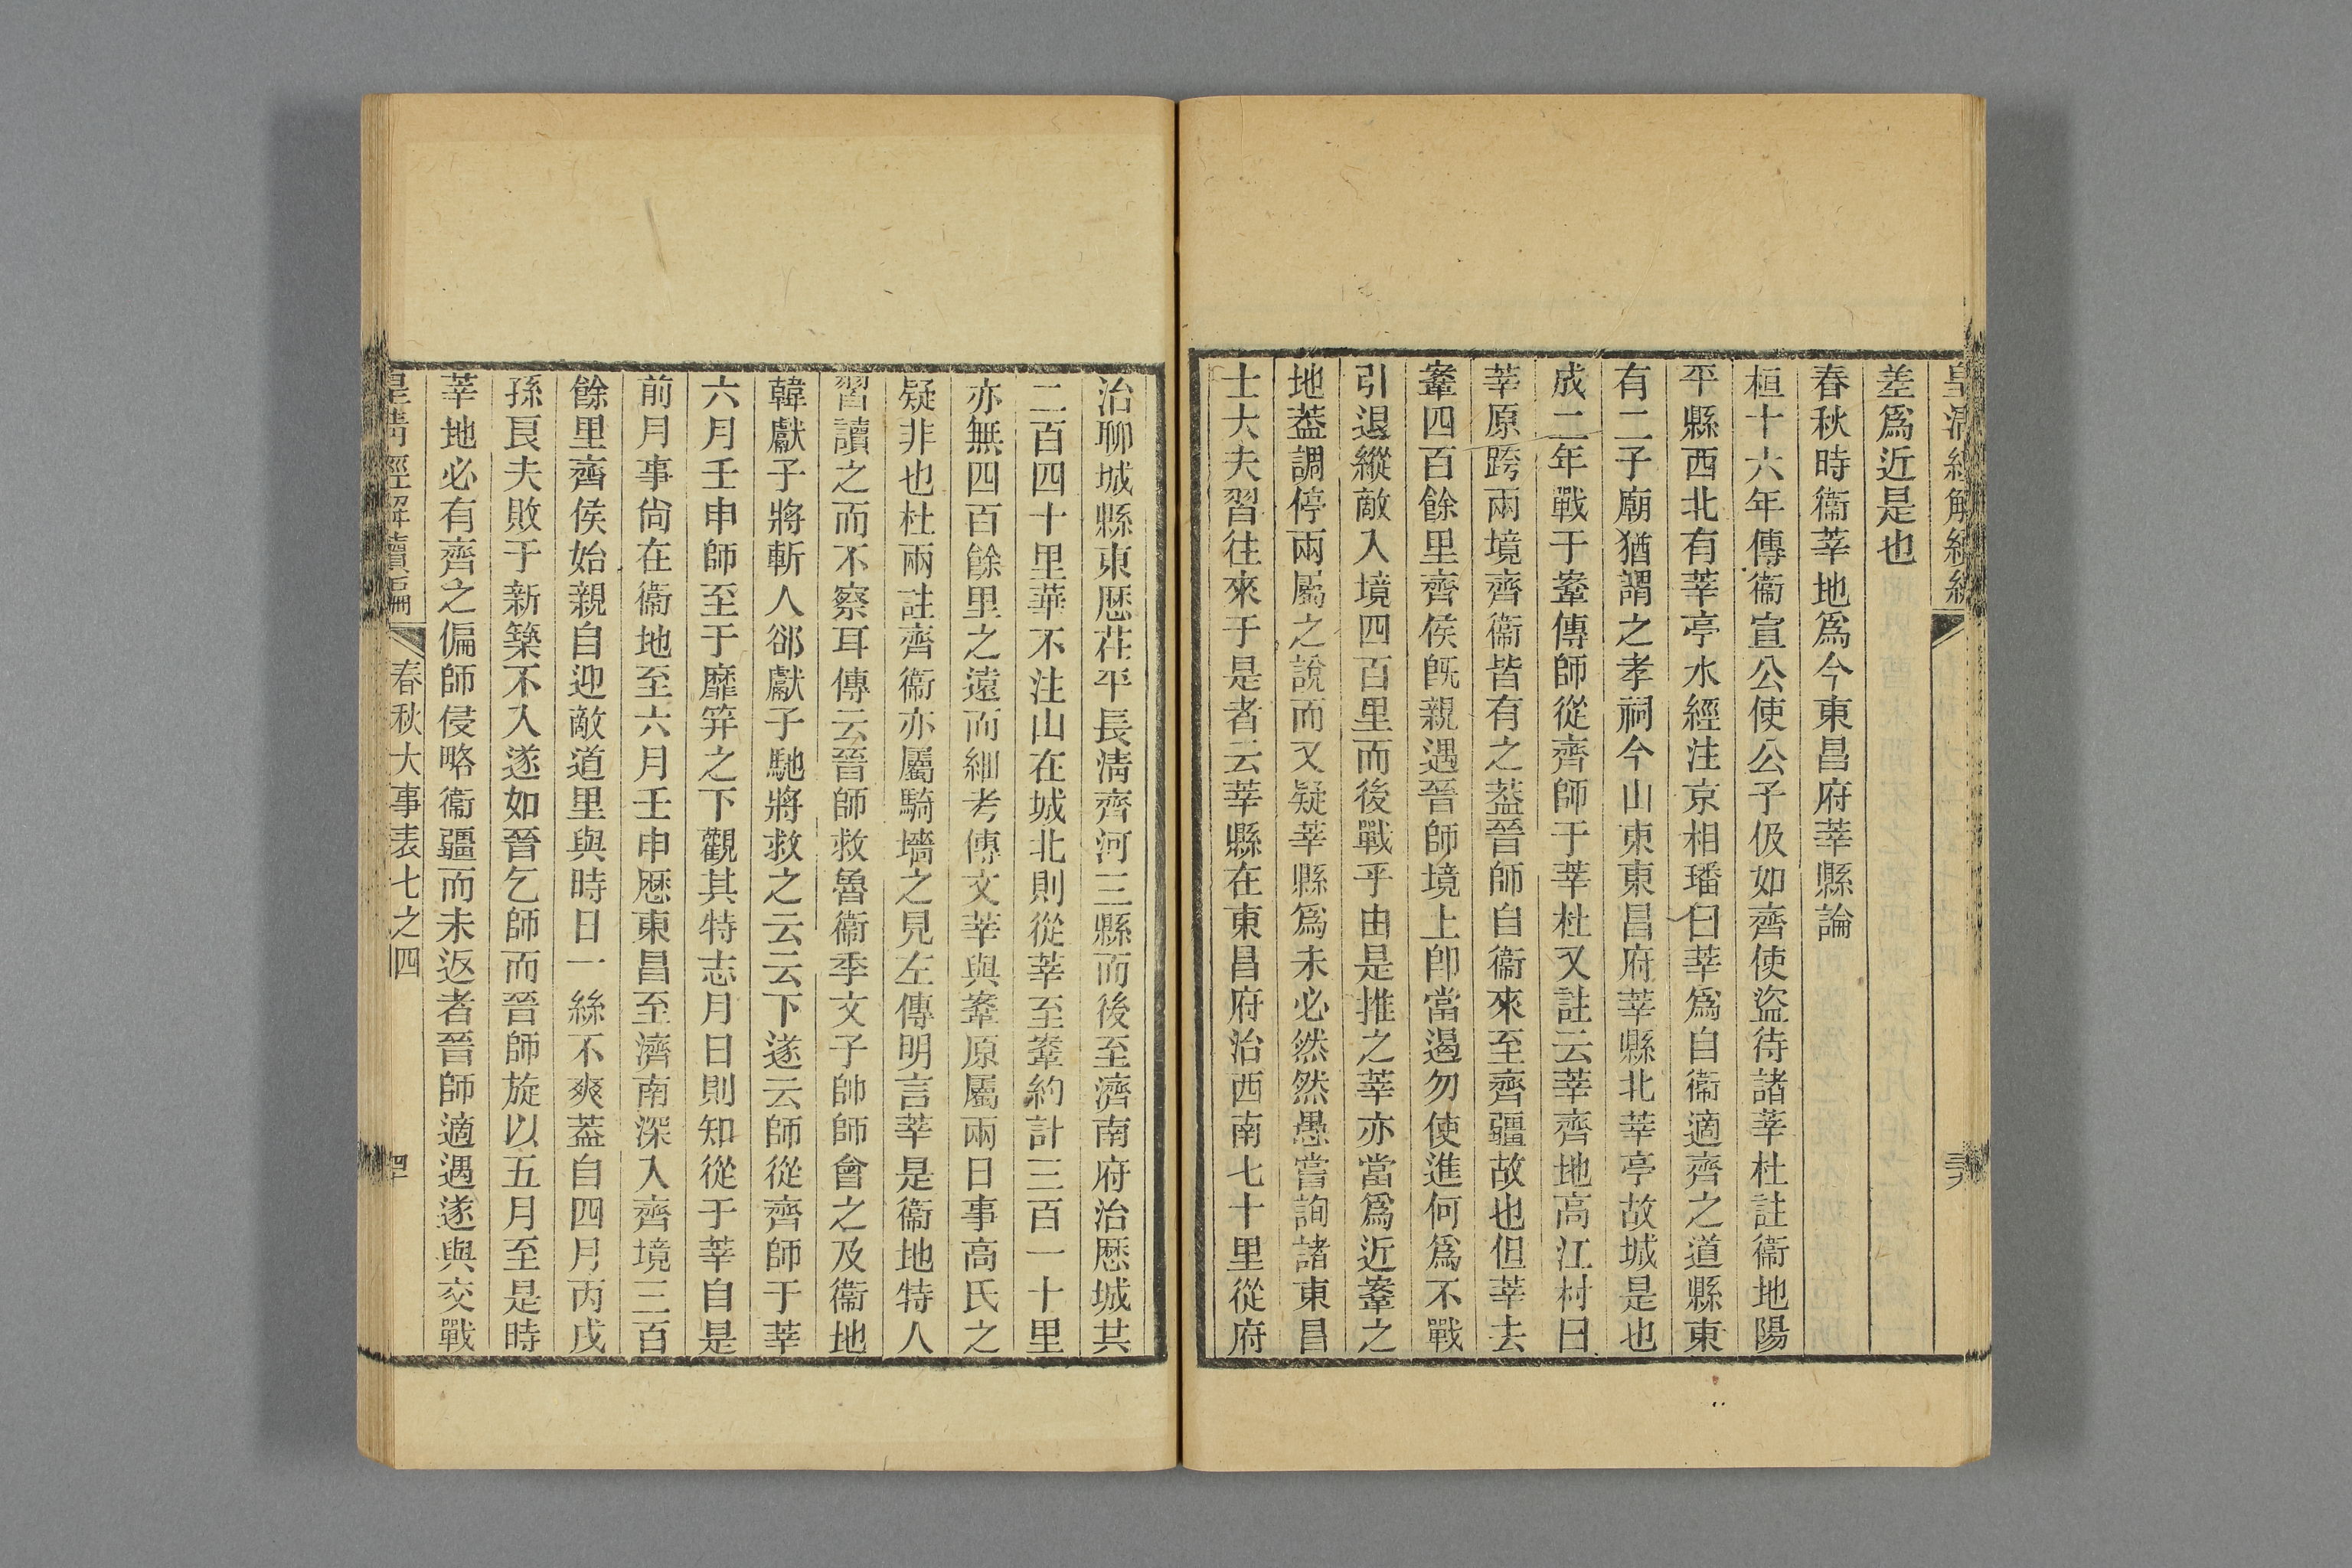 差爲近是也
春秋時衞莘地爲今東昌府莘縣論
桓十六年傳衞宣公使公子伋如齊使盜待諸莘杜註衞地陽
平縣西北有莘亭水經注京相璠曰莘爲自衞適齊之道縣東
有二子廟猶謂之孝祠今山東東昌府莘縣北莘亭故城是也
成二年戰于鞌傳師從齊師于莘杜又註云莘齊地高江村曰
莘原跨兩境齊衞皆有之葢晉師自衞來至齊疆故也但莘去
鞌四百餘里齊侯旣親遇晉師境上卽當遏勿使進何爲不戰
引退縱敵入境四百里而後戰乎由是推之莘亦當爲近鞌之
地葢調停兩屬之說而又疑莘縣爲未必然然愚嘗詢諸東昌
士大夫習往來于是者云莘縣在東昌府治西南七十里從府
治聊城縣東歷茌平長淸齊河三縣而後至濟南府治歷城共
二百四十里華不注山在城北則從莘至鞌約計三百一十里
亦無四百餘里之遠而細考傳文莘與鞌原屬兩日事高氏之
疑非也杜兩註齊衞亦屬騎墻之見左傳明言莘是衞地特人
習讀之而不察耳傳云晉師救魯衞季文子帥師會之及衞地
韓獻子將斬人郤獻子馳將救之云云下遂云師從齊師于莘
六月壬申師至于靡筓之下觀其特志月日則知從于莘自是
前月事尙在衞地至六月壬申歷東昌至濟南深入齊境三百
餘里齊侯始親自迎敵道里與時日一絲不爽葢自四月丙戌
孫良夫敗于新築不入遂如晉乞師而晉師旋以五月至是時
莘地必有齊之偏師侵略衞疆而未返者晉師適遇遂與交戰
皇淸經解續編
春秋大事表七之四